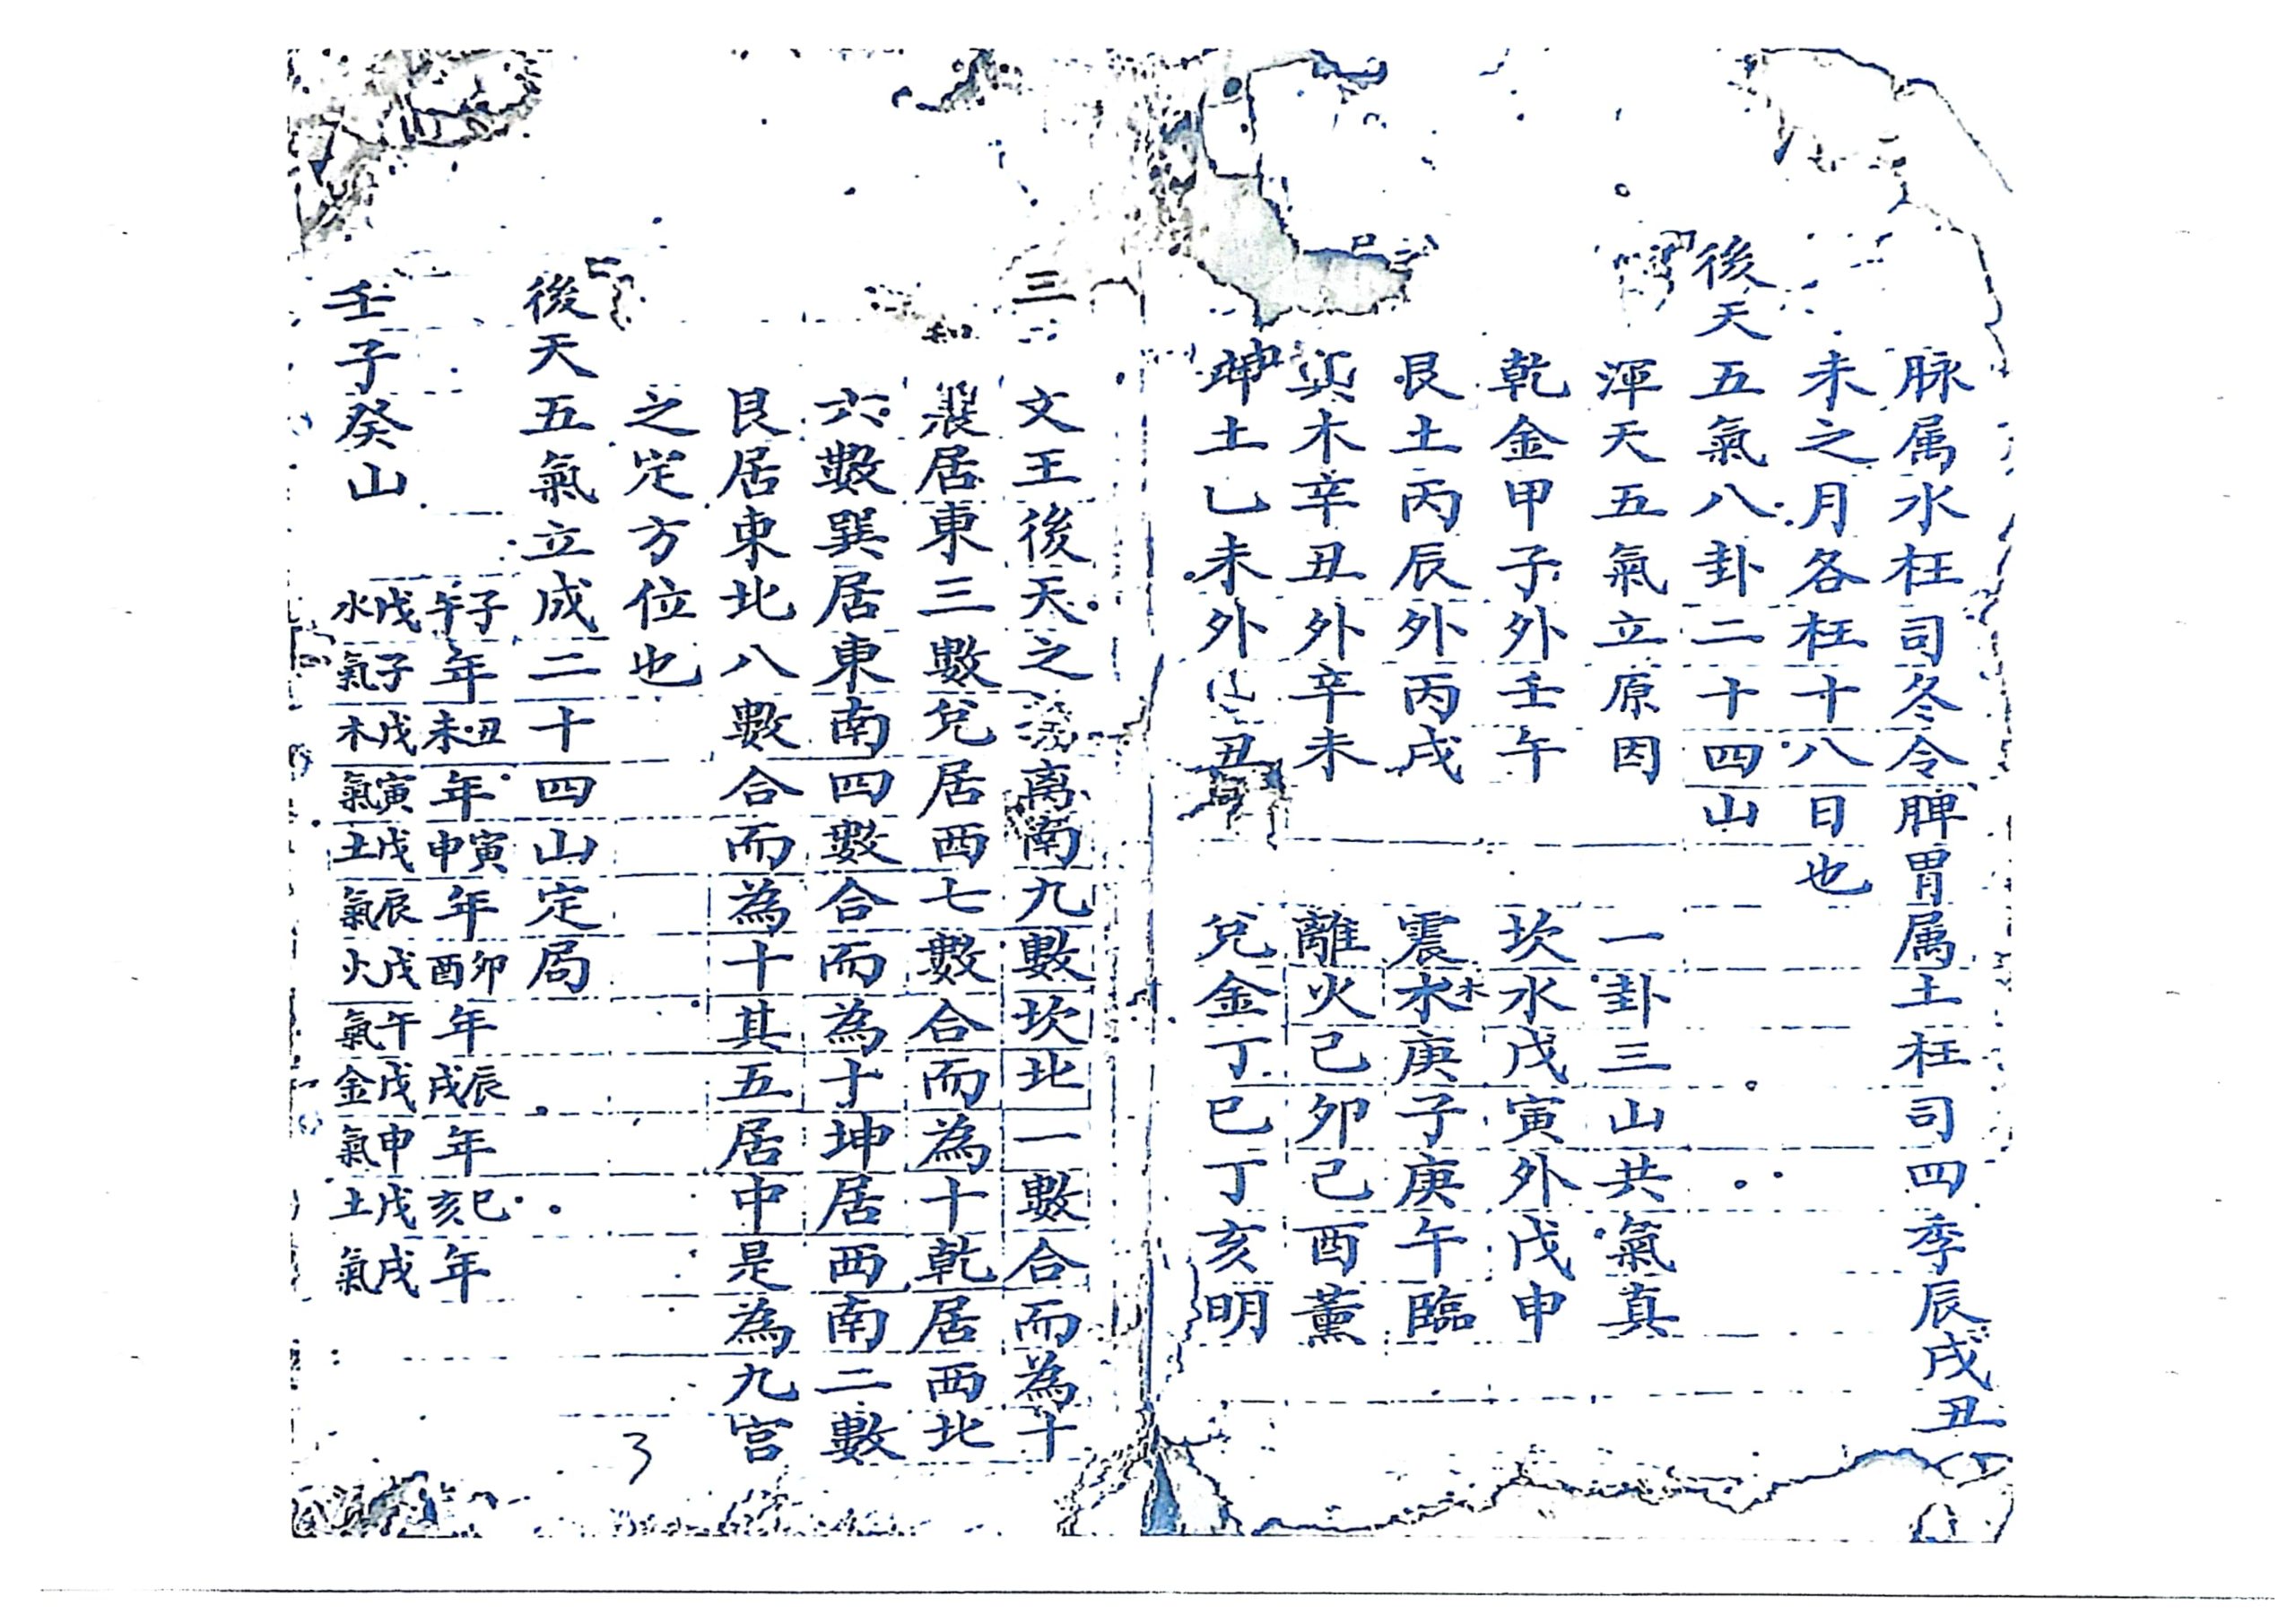 脉属水枉司冬令脾胃属土枉司四季辰戌丑
未之月各枉十八日也
後天五氣八卦二十四山
渾天五氣立原因 一卦三山共氣真
乾金甲子外壬午 坎水戊寅外戊申
艮土丙辰外丙戌 震木庚子庚午臨
巽木辛丑外辛未 離火己卯己酉薰
坤土乙未外丑 兌金丁巳丁亥明
三 文王後天之 离南九數坎北一數合而為十
居東三數兌居西七數合而為十乾居西北
六數巽居東南四數合而為十坤居西南二數
艮居東北八數合而為十其五居中是為九宮
之定方位也
後天五氣立成二十四山定局
子午年 丑未年 寅申年 卯酉年 辰戌年 巳亥年
壬子癸山 戊子水氣 戊寅木氣 戊辰土氣 戊午火氣 戊申金氣 戊戌土氣
3